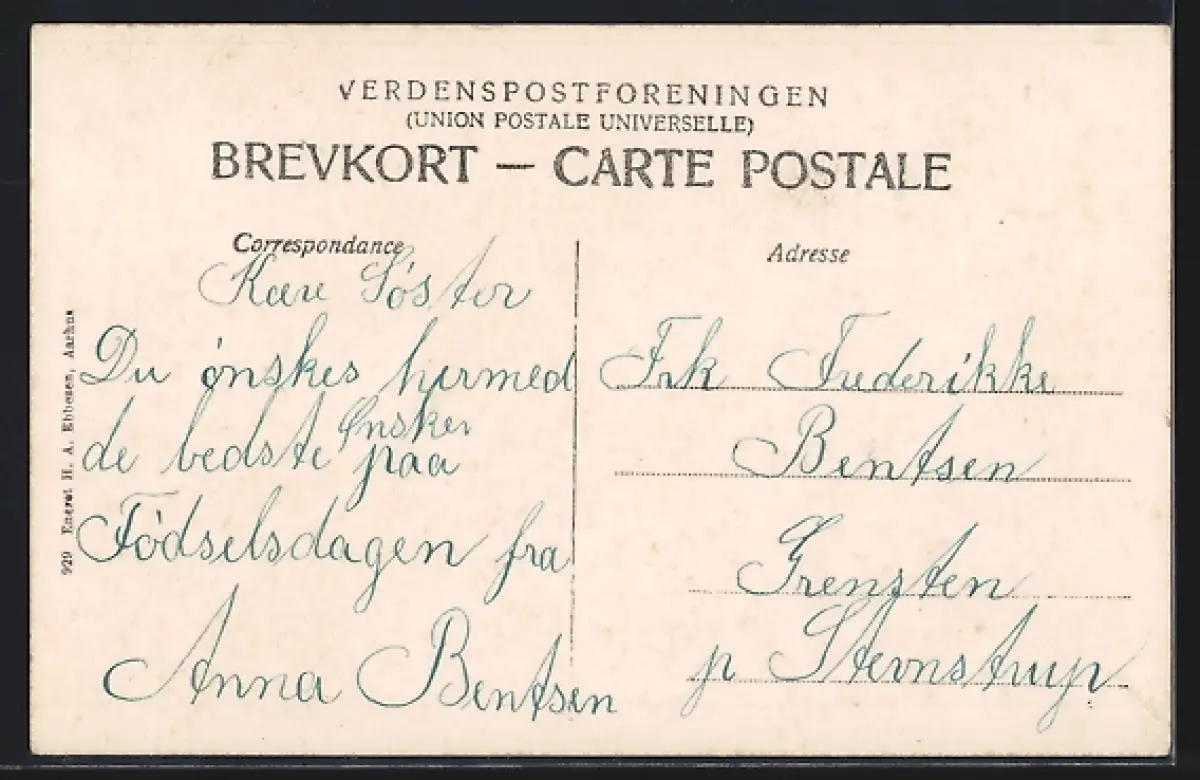 VERDENSPOSTFORENINGEN
(UNION POSTALE UNIVERSELLE)
BREVKORT — CARTE POSTALE
Correspondance
Kære Söster
Du önskes hermed
de bedste Ønsker paa
Födselsdagen fra
Anna Bentsen
Adresse
Frk Frederikke
Bentsen
Grensten
p Stevnstrup
929 Eneret H. A. Ebbesen, Aarhus